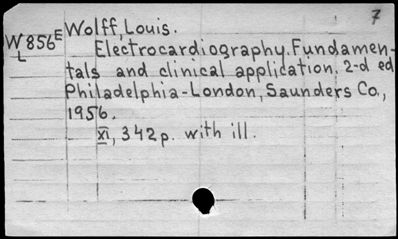 7
Wolff, Louis.
W 856 E
L
Electrocardiography. Fundamen-
tals and clinical application. 2-d ed
Philadelphia-London, Saunders Co.,
1956.
XI, 342 p. with ill.